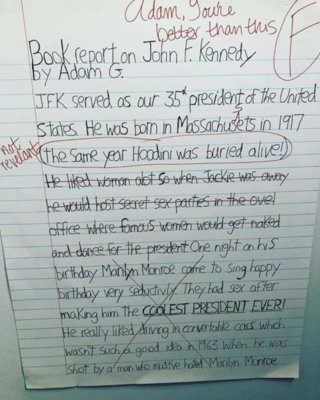 Adam, you're
better than this
F
Book report on John F. Kennedy
by Adam G.
JFK served as our 35th president of the United
States. He was born in Massachusets in 1917
not
revelant
(the same year Hoodini was buried alive!)
He liked woman alot so when Jackie was away
he would host secret sex parties in the ovel
office where famous women would get naked
and dance for the president One night on his
birthday Marilyn Monroe came to sing happy
birthday very seductivly They had sex after
making him The COOLEST PRESIDENT EVER!
He really liked driving in convertable cars which
wasn't such a good idea in 1963 when he was
shot by a man who mustve hated Marilyn Monroe